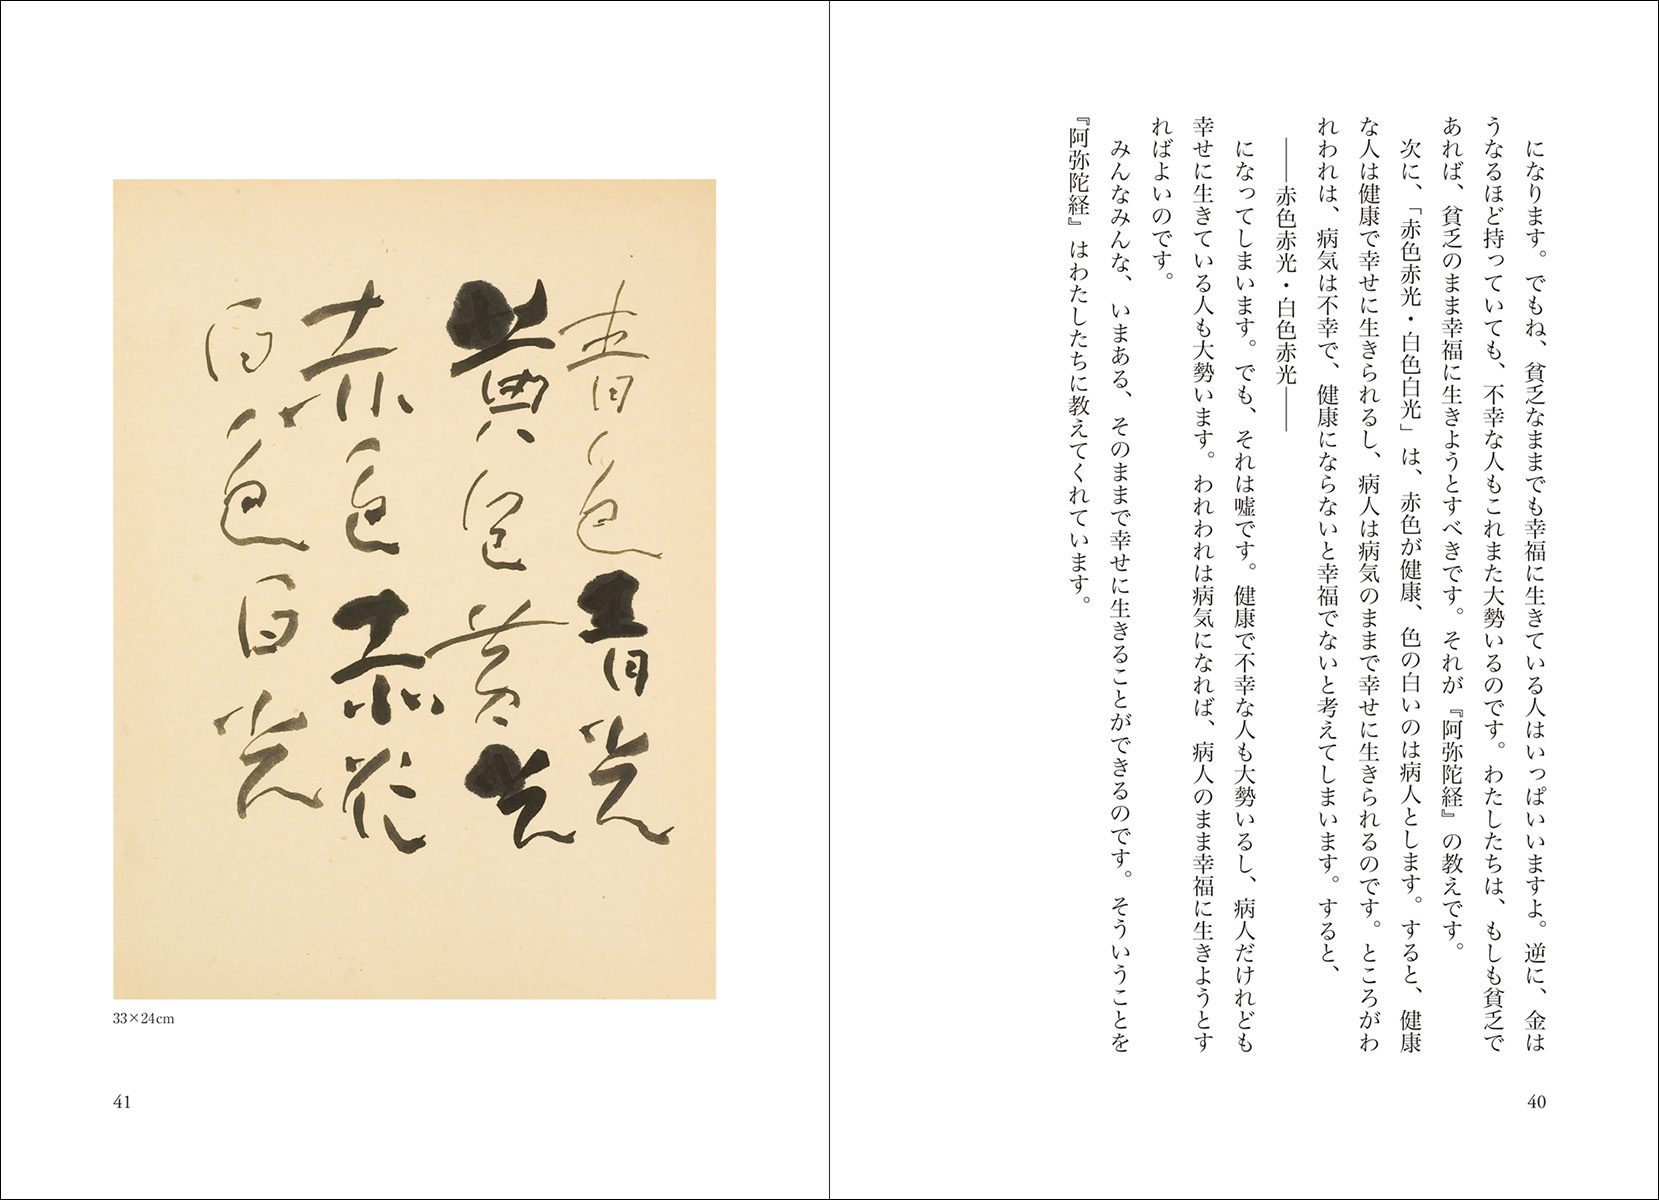 になります。でもね、貧乏なままでも幸福に生きている人はいっぱいいますよ。逆に、金は
うなるほど持っていても、不幸な人もこれまた大勢いるのです。わたしたちは、もしも貧乏で
あれば、貧乏のまま幸福に生きようとすべきです。それが『阿弥陀経』の教えです。
次に、「赤色赤光・白色白光」は、赤色が健康、色の白いのは病人とします。すると、健康
な人は健康で幸せに生きられるし、病人は病気のままで幸せに生きられるのです。ところがわ
れわれは、病気は不幸で、健康にならないと幸福でないと考えてしまいます。すると、
——赤色赤光・白色赤光——
になってしまいます。でも、それは嘘です。健康で不幸な人も大勢いるし、病人だけれども
幸せに生きている人も大勢います。われわれは病気になれば、病人のまま幸福に生きようとす
ればよいのです。
みんなみんな、いまある、そのままで幸せに生きることができるのです。そういうことを
『阿弥陀経』はわたしたちに教えてくれています。
40
青色青光
黄色黄光
赤色赤光
白色白光
33×24cm
41